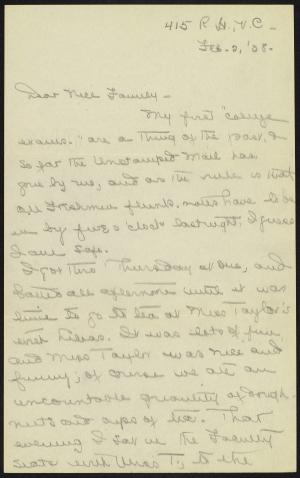 415 R. H., V. C. -
Feb. 2, '08.
Dear Nice Family -
My first "college
exams." are a thing of the past, &
so far the Unstamped Mail has
gone by me, and as the rule is that
all Freshmen flunk-notes have to be
in by five o'clock last night, I guess
I am safe.
I got thro Thursday at one, and
all afternoon until it was
time to go to tea at Miss Taylor's
with Helens. It was lots of fun,
and Miss Taylor was nice and
funny; of course we ate an
uncountable quantity of dough-
nuts and cups of tea. That
evening I sat in the Faculty
seats with Miss T. to the